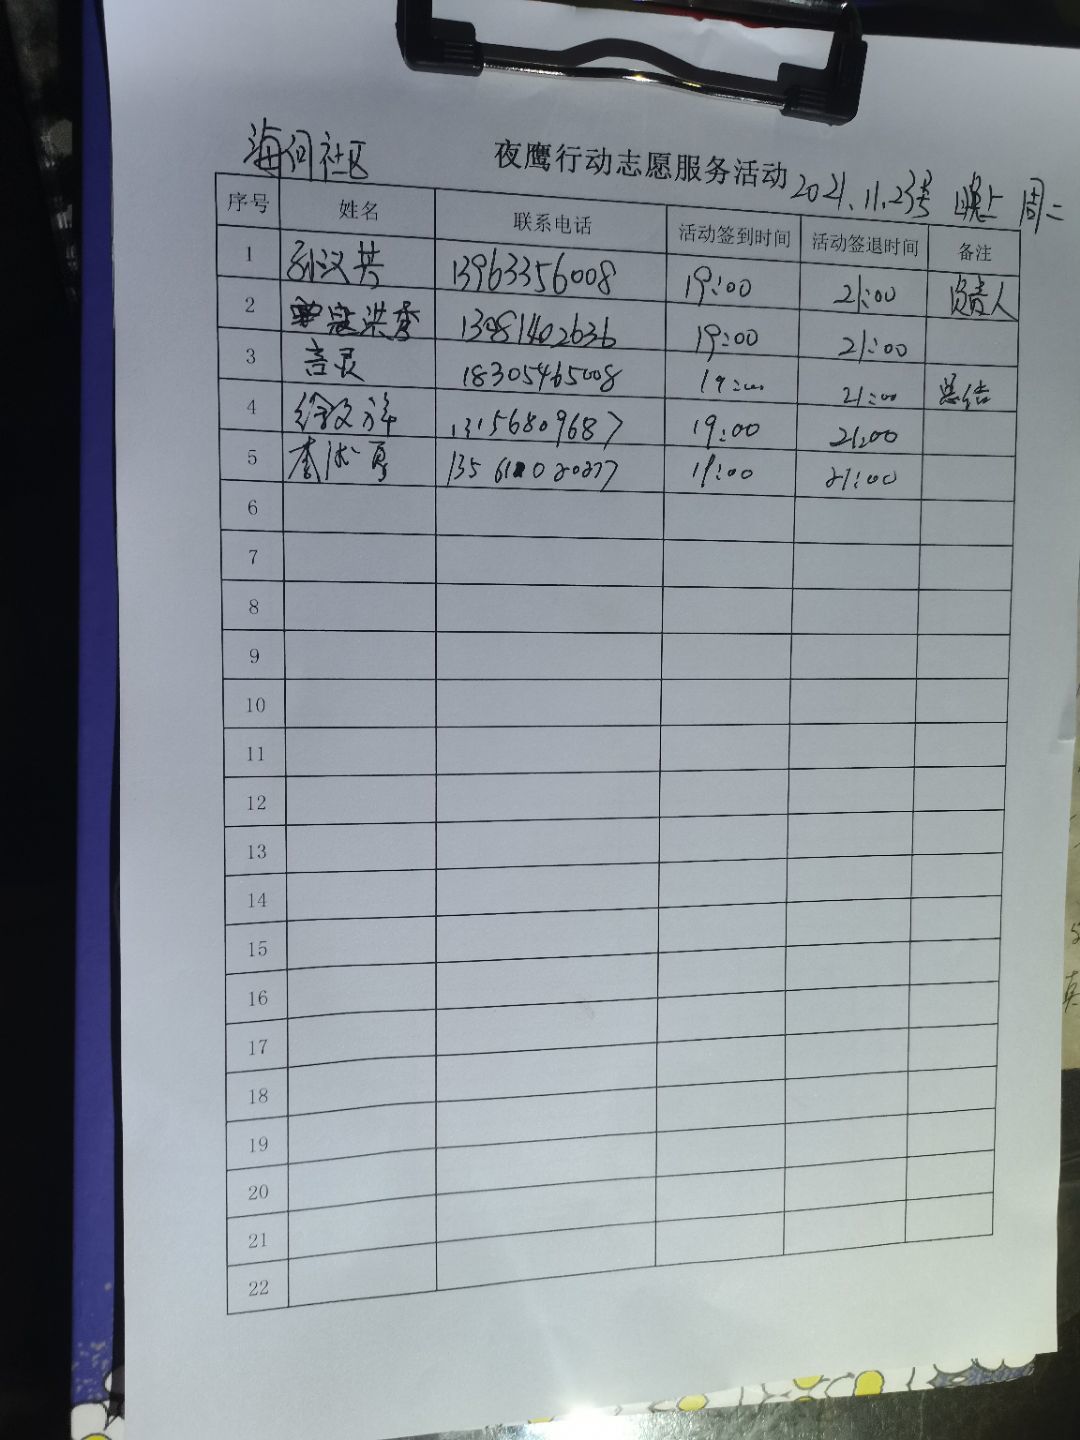 海问社区
夜鹰行动志愿服务活动 2021.11.23号 晚上 周二
序号 姓名 联系电话 活动签到时间 活动签退时间 备注
1 孙汉共 13963356008 19:00 21:00 负责人
2 洪香 13981402636 19:00 21:00
3 言灵 18305465008 19:00 21:00 总结
4 徐文祥 13156809687 19:00 21:00
5 李术厚 19:00 21:00
6
7
8
9
10
11
12
13
14
15
16
17
18
19
20
21
22